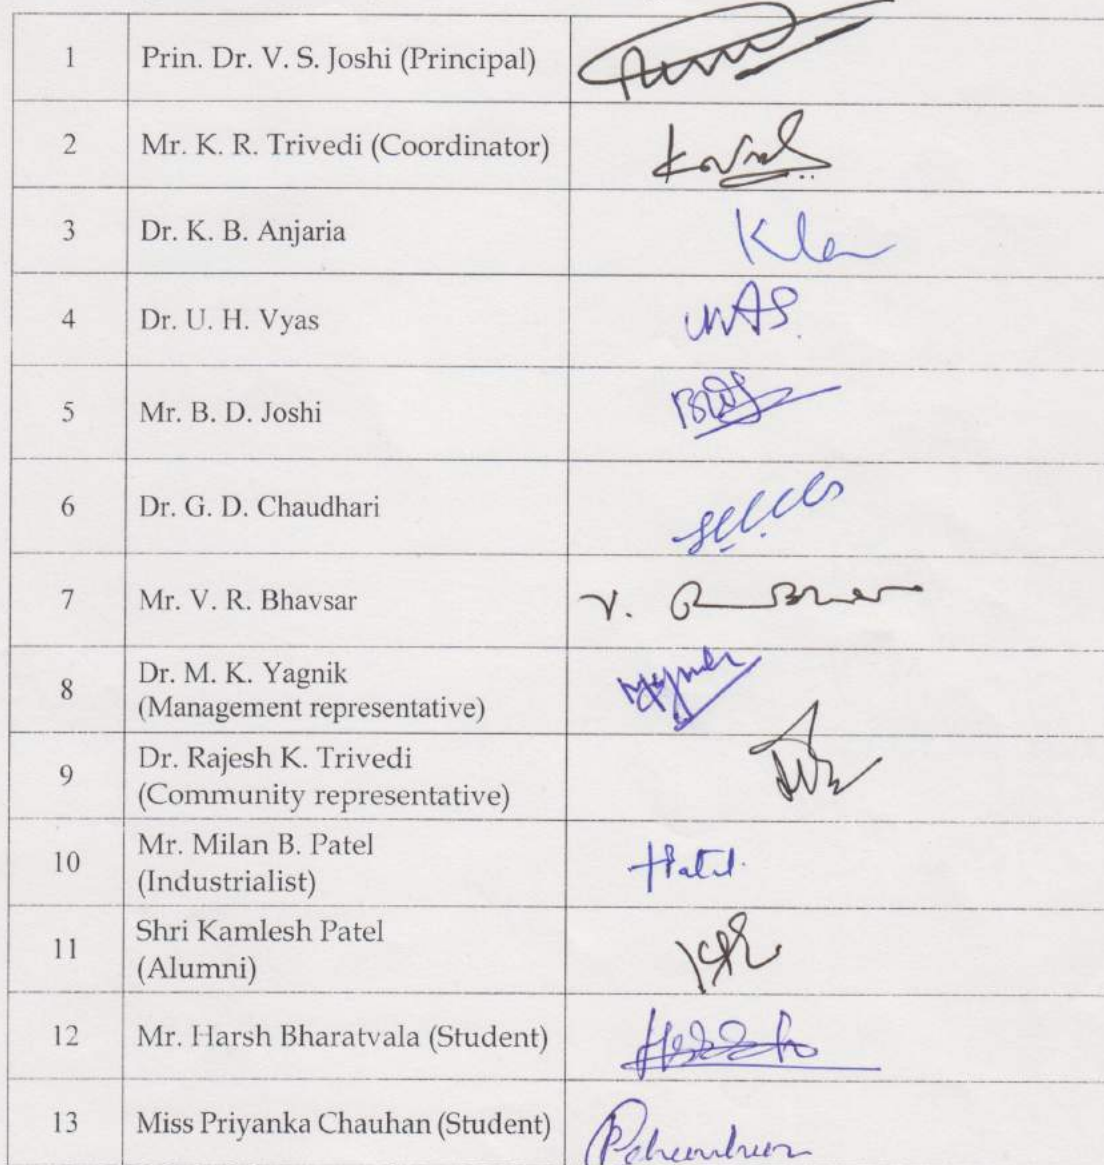 1 Prin. Dr. V. S. Joshi (Principal)
2 Mr. K. R. Trivedi (Coordinator)
3 Dr. K. B. Anjaria
4 Dr. U. H. Vyas
5 Mr. B. D. Joshi
6 Dr. G. D. Chaudhari
7 Mr. V. R. Bhavsar V. R
8 Dr. M. K. Yagnik
(Management representative)
9 Dr. Rajesh K. Trivedi
(Community representative)
10 Mr. Milan B. Patel
(Industrialist)
11 Shri Kamlesh Patel
(Alumni)
12 Mr. Harsh Bharatvala (Student)
13 Miss Priyanka Chauhan (Student)